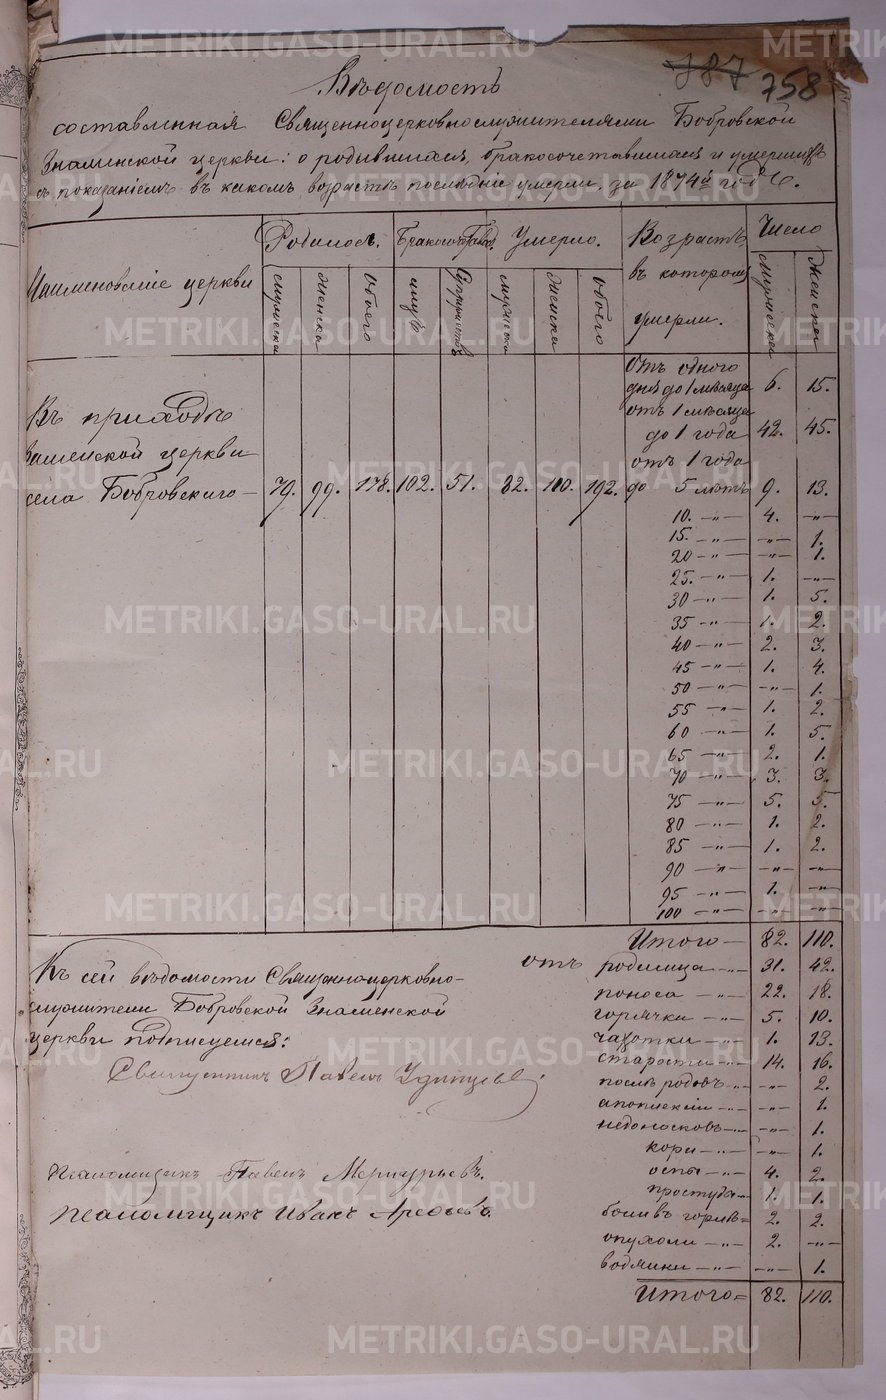 787 758
Вѣдомость
составленная Священноцерковнослужителями Бобровской
Знаменской церкви: о родившихся, бракосочетавшихся и умершихъ
съ показаніемъ въ какомъ возрастѣ послѣдніе умерли, за 1874й годъ.
Наименованіе церкви
Родилось. Умерло. Возрастъ въ которомъ умерли. Число
мужеска женска обоего лицъ супружествъ мужеска женска обоего мужеска женска
Въ приходѣ
Знаменской церкви
села Бобровскаго — 79. 99. 178. 102. 51. 82. 110. 192.
Отъ одного
дня до 1 мѣсяца 6. 15.
отъ 1 мѣсяца
до 1 года 42. 45.
отъ 1 года
до 5 лѣтъ 9. 13.
10. —"— 4. —"—
15. —"— —"— 1.
20 —"— —"— 1.
25. —"— 1. —"—
30 —"— 1. 5.
35 —"— 1. 2.
40 —"— 2. 3.
45 —"— 1. 4.
50 —"— —"— 1.
55 —"— 1. 2.
60 —"— 1. 5.
65 —"— 2. 1.
70 —"— 3. 3.
75 —"— 5. 5.
80 —"— 1. 2.
85 —"— 1. 2.
90 —"— —"— —"—
95 —"— 1. —"—
100 —"— —"— —"—
Итого — 82. 110.
Къ сей вѣдомости Священноцерковно-
служители Бобровской Знаменской
церкви подписуемся:
Священникъ Павелъ Удинцевъ
Псаломщикъ Павелъ Меркурьевъ.
Псаломщикъ Иванъ Арефьевъ
отъ родимца —"— 31. 42.
поноса —"— 22. 18.
горячки —"— 5. 10.
чахотки —"— 1. 13.
старости —"— 14. 16.
послѣ родовъ —"— —"— 2.
апоплексіи —"— —"— 1.
недоносковъ —"— —"— 1.
кори —"— —"— 1.
оспы —"— 4. 2.
простуды —"— 1. 1.
боли въ горлѣ = 2. 2.
опухоли —"— 2. —"—
водянки —"— —"— 1.
Итого = 82. 110.
METRIKI.GASO-URAL.RU